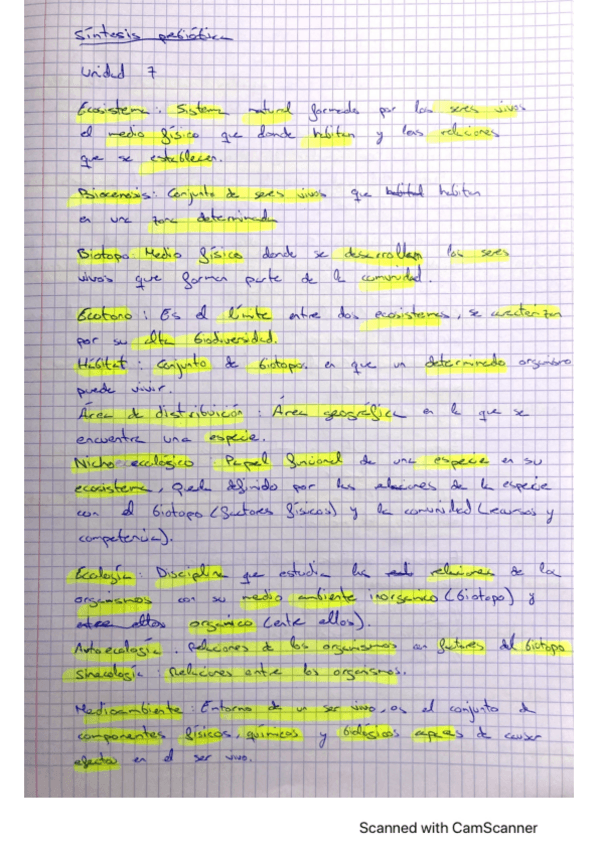 Síntesis periódica
Unidad 7
Ecosistema: Sistema natural formado por los seres vivos
el medio físico que donde habitan y las relaciones
que se establecen.
Biocenosis: Conjunto de seres vivos que habitan
en una zona determinada
Biotopo: Medio físico donde se desarrollan los seres
vivos que forman parte de la comunidad.
Ecotono: Es el límite entre dos ecosistemas, se caracterizan
por su alta biodiversidad.
Hábitat: conjunto de biotopos en que un determinado organismo
puede vivir.
Área de distribuición: Área geográfica en la que se
encuentra una especie.
Nicho ecológico: Papel funcional de una especie en su
ecosistema, queda definido por las relaciones de la especie
con el biotopo (factores físicos) y la comunidad (recursos y
competencia).
Ecología: Disciplina que estudia las relaciones de los
organismos con su medio ambiente inorgánico (biotopo) y
orgánico (entre ellos).
Autoecología: Relaciones de los organismos con factores del biotopo
Sinecología: Relaciones entre los organismos.
Medioambiente: Entorno de un ser vivo, es el conjunto de
componentes físicos, químicos y biológicos capaces de causar
efectos en el ser vivo.
Scanned with CamScanner